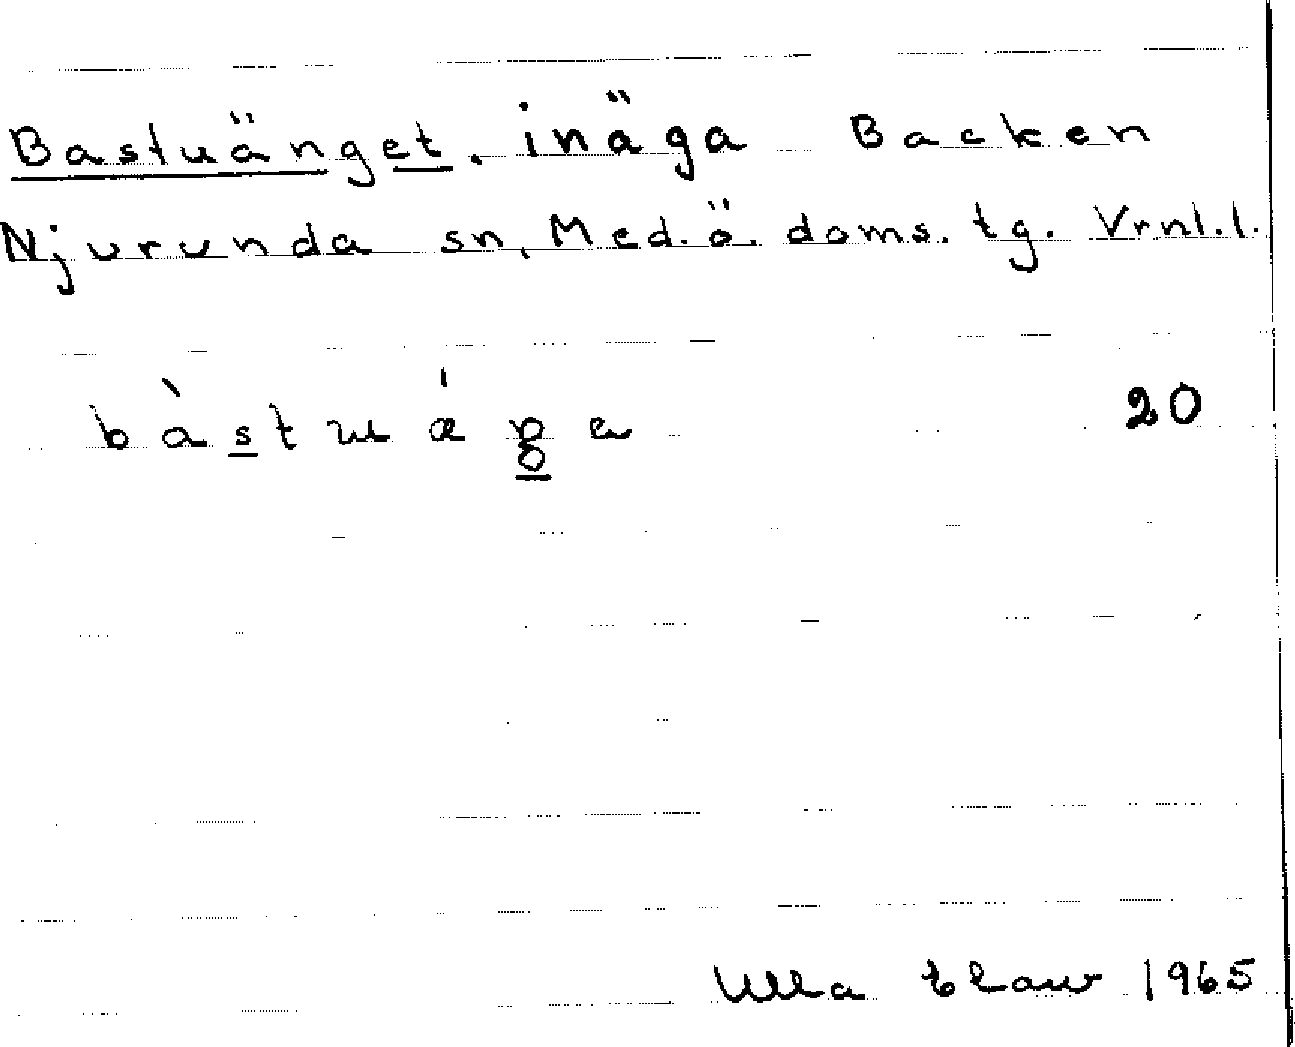 Bastuänget. inäga Backen
Njurunda sn, Med. ö. doms. tg. Vrnl. l.
20
Ulla 1965